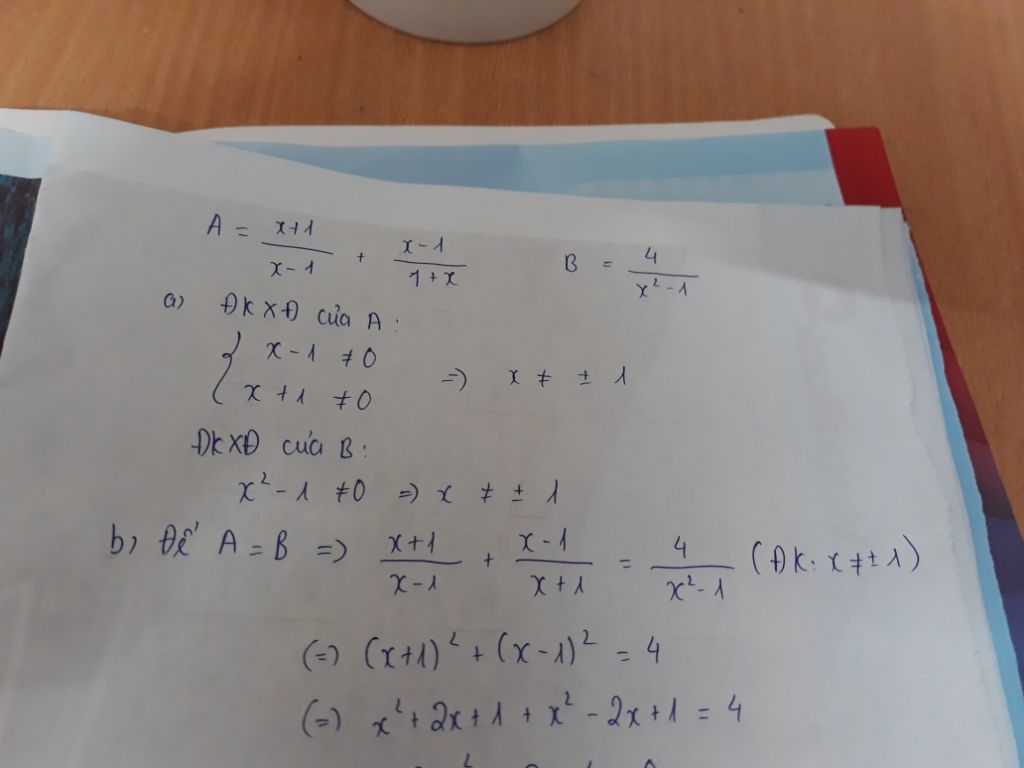 A = (x+1)/(x-1) + (x-1)/(1+x)    B = 4/(x²-1)
a) ĐKXĐ của A:
{ x-1 ≠ 0
x+1 ≠ 0 => x ≠ ± 1
ĐKXĐ của B:
x²-1 ≠ 0 => x ≠ ± 1
b) Để A = B => (x+1)/(x-1) + (x-1)/(x+1) = 4/(x²-1) (ĐK: x ≠ ± 1)
(=) (x+1)² + (x-1)² = 4
(=) x² + 2x + 1 + x² - 2x + 1 = 4